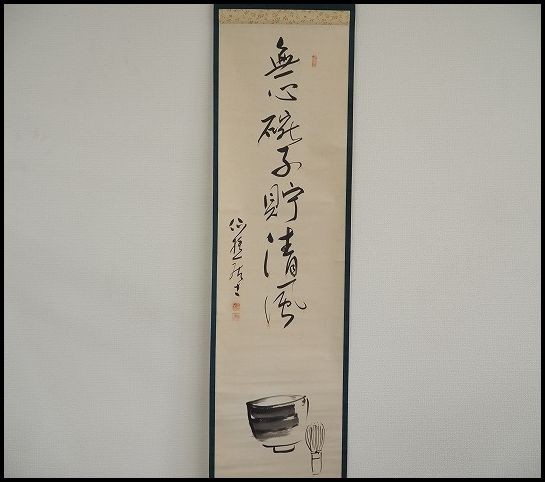 無心碗子貯清風